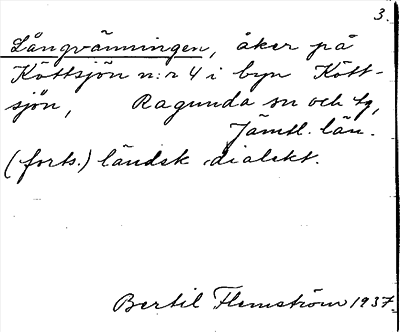 3.
Långvänningen, åker på
Köttsjön n:r 4 i byn Kött-
sjön, Ragunda sn och tg,
Jämtl. län.
(forts.) ländsk dialekt.
Bertil Flemström 1937